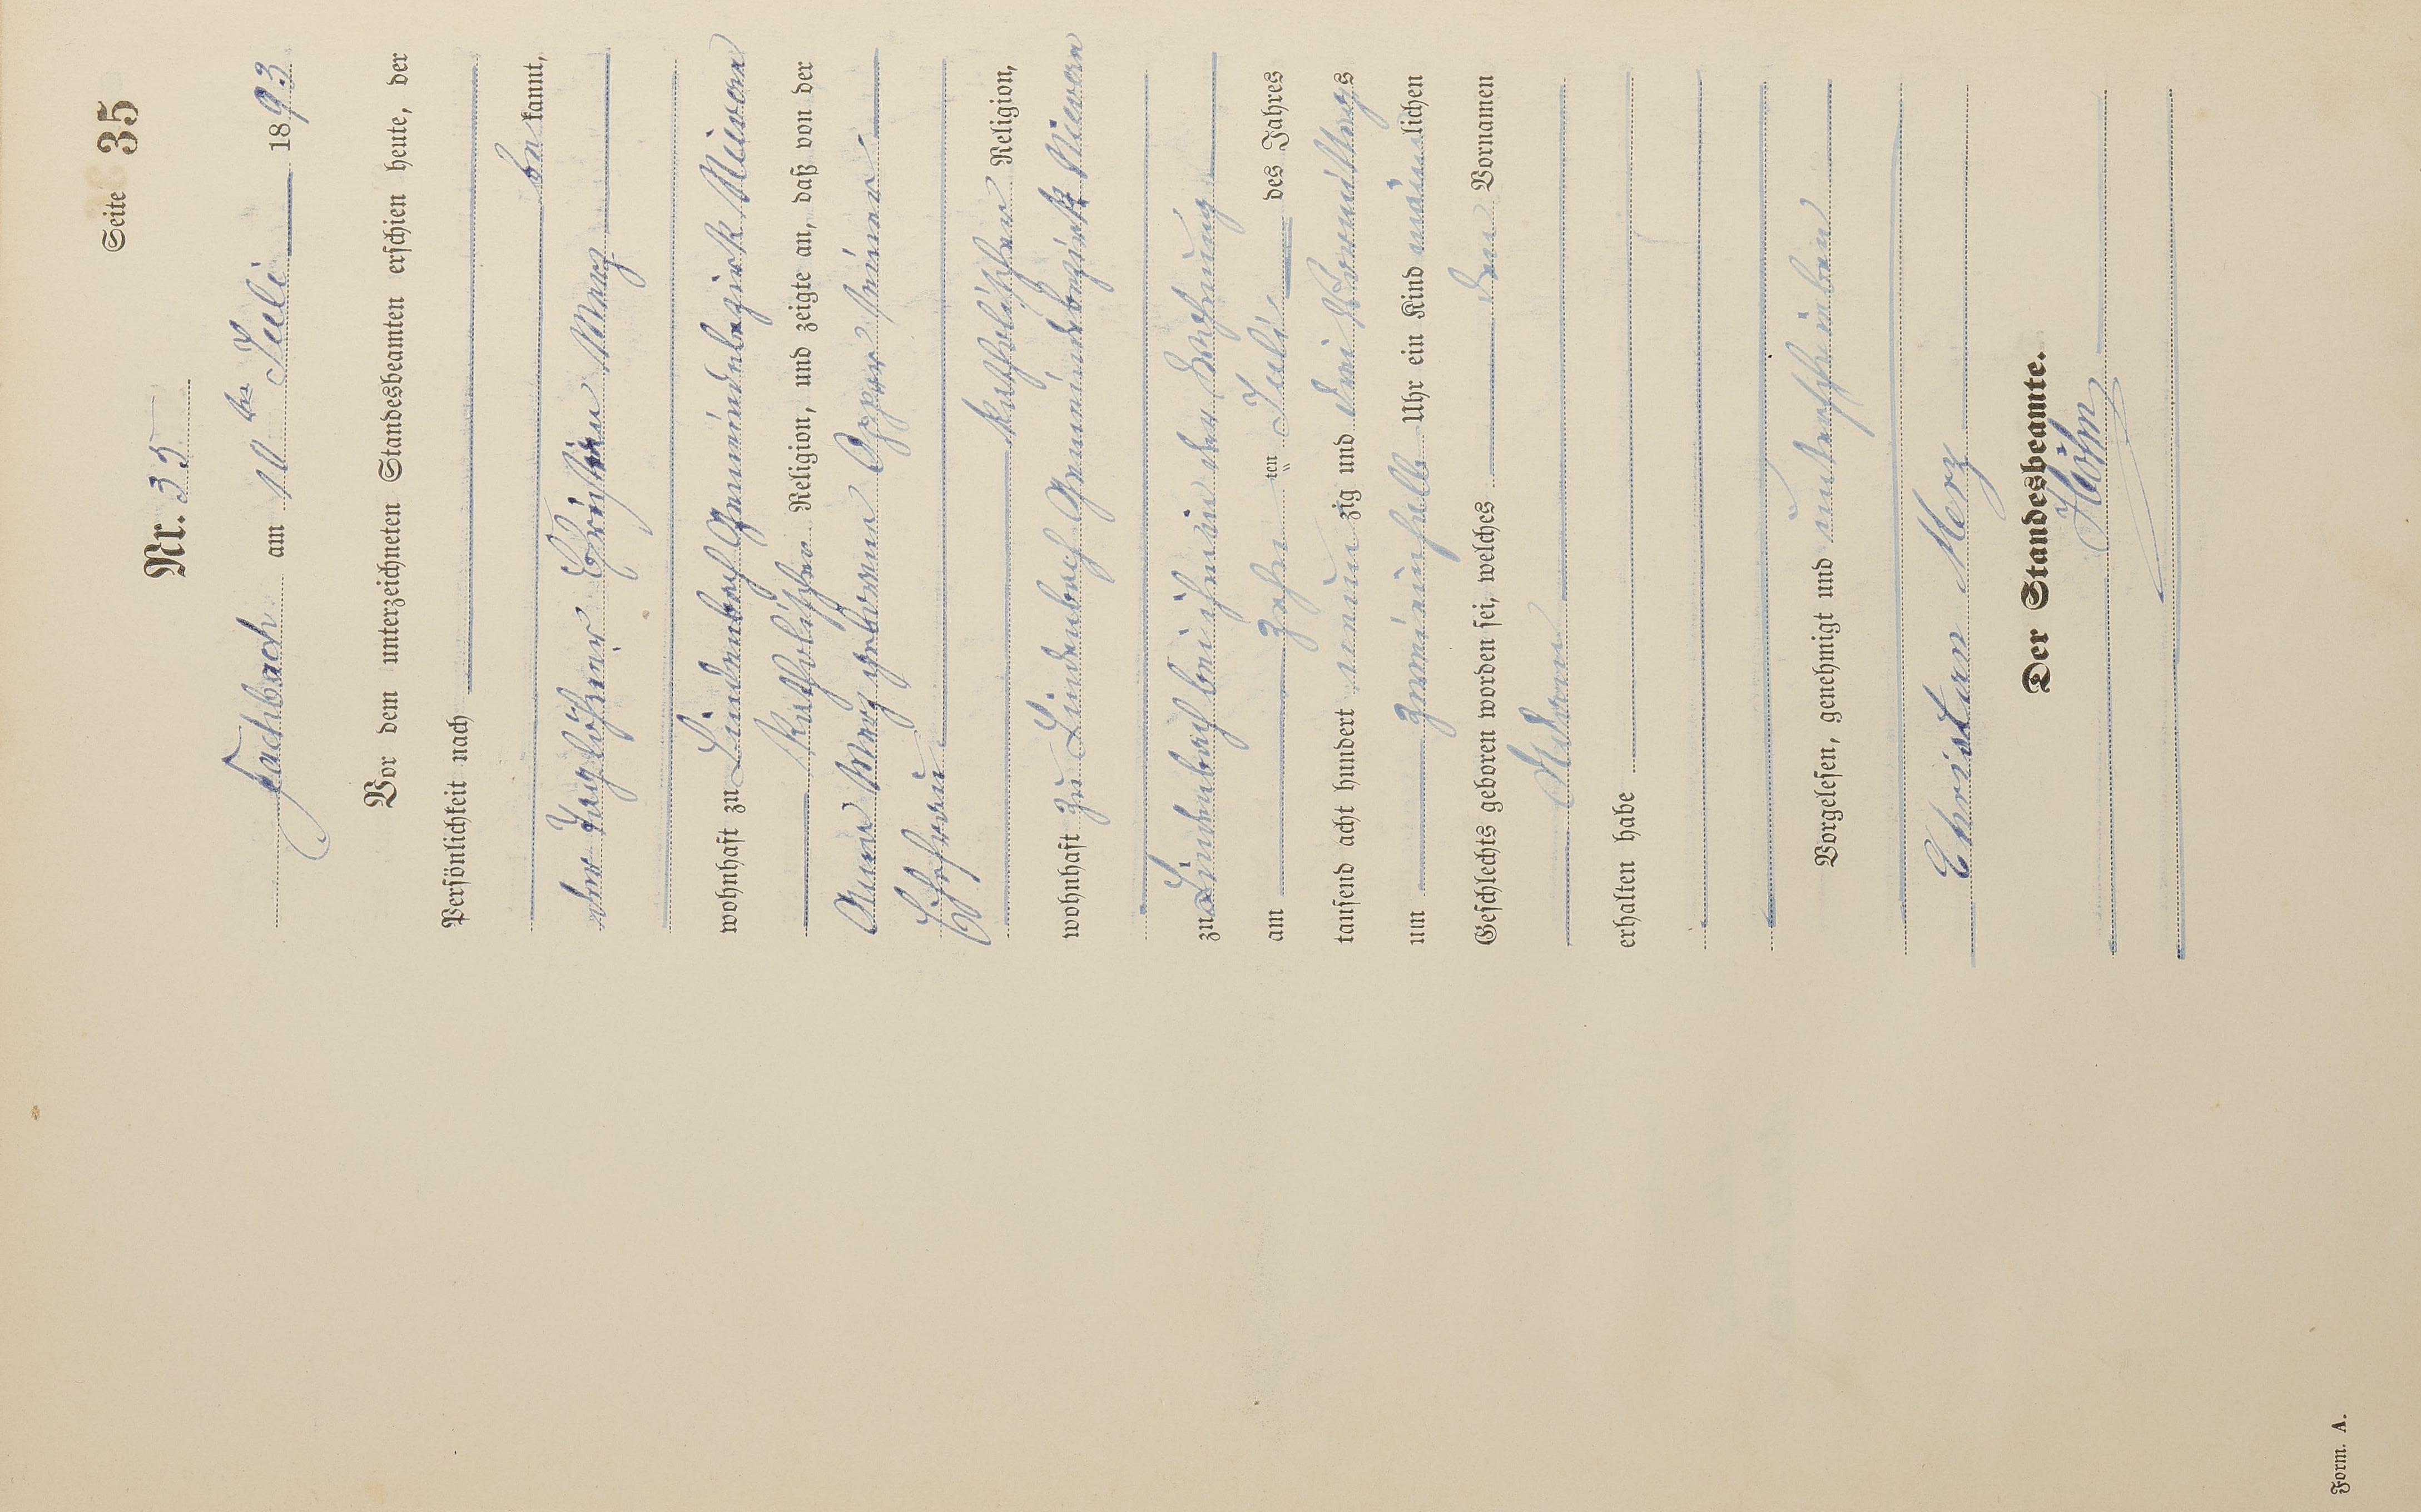 Seite 35
Nr. 35
Fachbach am 10ten Juli 1893
Vor dem unterzeichneten Standesbeamten erschien heute, der
Persönlichkeit nach
be kannt,
der Taglöhner Christian Merz
wohnhaft zu Lindenbach Gemeindebezirk Nievern
katholischer Religion, und zeigte an, daß von der
Anna Merz geborenen Opper seiner
Ehefrau
katholischer Religion,
wohnhaft zu Lindenbach Gemeindebezirk Nievern
zu Lindenbach bei ihm in der Wohnung
am zehn ten Juli des Jahres
tausend acht hundert neun zig und drei Vormittags
um zweieinhalb Uhr ein Kind männ lichen
Geschlechts geboren worden sei, welches den Vornamen
Adam
erhalten habe
Vorgelesen, genehmigt und unterschrieben
Christian Merz
Der Standesbeamte.
Höhn
Form. A.